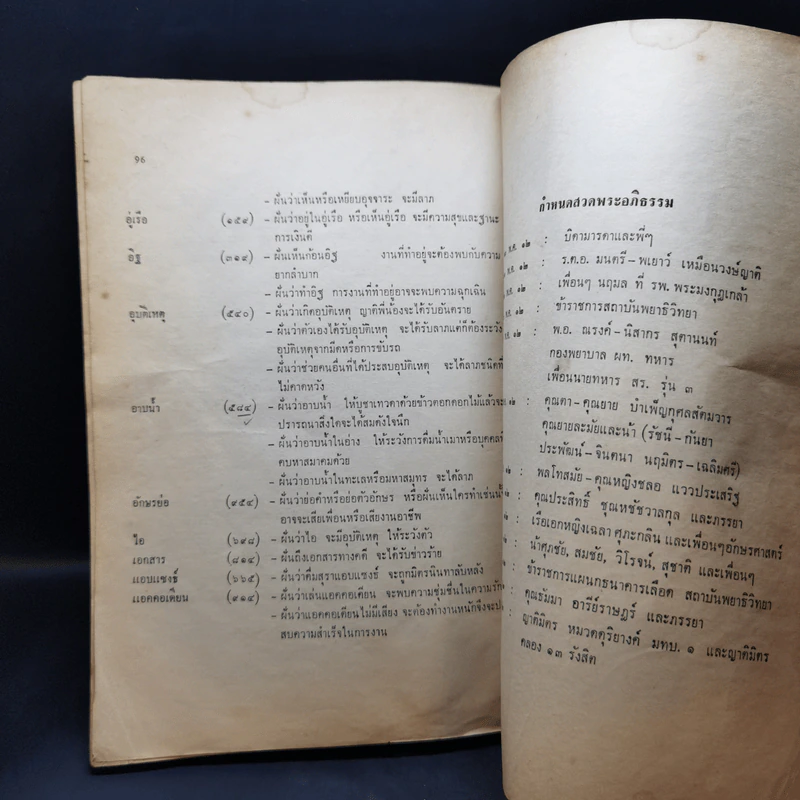 96
– ฝันว่าเห็นหรือเหยียบอุจจาระ จะมีลาภ
อู่เรือ (๑๕๙) – ฝันว่าอยู่ในอู่เรือ หรือเห็นอู่เรือ จะมีความสุขและฐานะ
การเงินดี
อิฐ (๓๑๙) – ฝันเห็นก้อนอิฐ งานที่ทำอยู่จะต้องพบกับความ
ยากลำบาก
– ฝันว่าทำอิฐ การงานที่ทำอยู่อาจจะพบความฉุกเฉิน
อุบัติเหตุ (๕๔๐) – ฝันว่าเกิดอุบัติเหตุ ญาติพี่น้องจะได้รับอันตราย
– ฝันว่าตัวเองได้รับอุบัติเหตุ จะได้รับลาภแต่ก็ต้องระวัง
อุบัติเหตุจากมีดหรือการขับรถ
– ฝันว่าช่วยคนอื่นที่ได้ประสบอุบัติเหตุ จะได้ลาภชนิดที่
ไม่คาดหวัง
อาบน้ำ (๕๘๔) – ฝันว่าอาบน้ำ ให้บูชาเทวดาด้วยข้าวตอกดอกไม้แล้วจะ
ปรารถนาสิ่งใดจะได้สมดังใจนึก
– ฝันว่าอาบน้ำในอ่าง ให้ระวังการดื่มน้ำเมาหรือบุคคล
คบหาสมาคมด้วย
– ฝันว่าอาบน้ำในทะเลหรือมหาสมุทร จะได้ลาภ
อักษรย่อ (๙๕๔) – ฝันว่าย่อคำหรือย่อตัวอักษร หรือฝันเห็นใครทำเช่นนั้
อาจจะเสียเพื่อนหรือเสียงานอาชีพ
ไอ (๖๙๘) – ฝันว่าไอ จะมีอุบัติเหตุ ให้ระวังตัว
เอกสาร (๘๑๔) – ฝันถึงเอกสารทางคดี จะได้รับข่าวร้าย
แอบแซงธ์ (๖๖๕) – ฝันว่าดื่มสุราแอบแซงธ์ จะถูกมิตรนินทาลับหลัง
แอคคอเดียน (๙๑๔) – ฝันว่าเล่นแอคคอเดียน จะพบความชุ่มชื่นในความรัก
– ฝันว่าแอคคอเดียนไม่มีเสียง จะต้องทำงานหนักจึงจะปร
สบความสำเร็จในการงาน
กำหนดสวดพระอภิธรรม
ต.ค. ๑๒ : บิดามารดาและพี่ๆ
ต.ค. ๑๒ : ร.ต.อ. มนตรี–พเยาว์ เหมือนวงษ์ญาติ
ต.ค. ๑๒ : เพื่อนๆ นฤมล ที่ รพ. พระมงกุฎเกล้า
ต.ค. ๑๒ : ข้าราชการสถาบันพยาธิวิทยา
ต.ค. ๑๒ : พ.อ. ณรงค์–นิสากร สุตานนท์
กองพยาบาล ผท. ทหาร
เพื่อนนายทหาร สร. รุ่น ๓
๑๒ : คุณตา–คุณยาย บำเพ็ญกุศลสัตมวาร
คุณยายละมัยและน้า (รัชนี–กันยา
ประพัฒน์–จินตนา นฤมิตร–เฉลิมศรี)
๑๒ : พลโทสมัย–คุณหญิงชลอ แววประเสริฐ
: คุณประสิทธิ์ ชุณหชัชวาลกุล และภรรยา
: เรือเอกหญิงเฉลา ศุภะกลิน และเพื่อนๆอักษรศาสตร์
: น้าศุภชัย, สมชัย, วิโรจน์, สุชาติ และเพื่อนๆ
: ข้าราชการแผนกธนาคารเลือด สถาบันพยาธิวิทยา
: คุณธัมมา อารีย์ราษฎร์ และภรรยา
: ญาติมิตร หมวดดุริยางค์ มทบ. ๑ และญาติมิตร
คลอง ๑๓ รังสิต